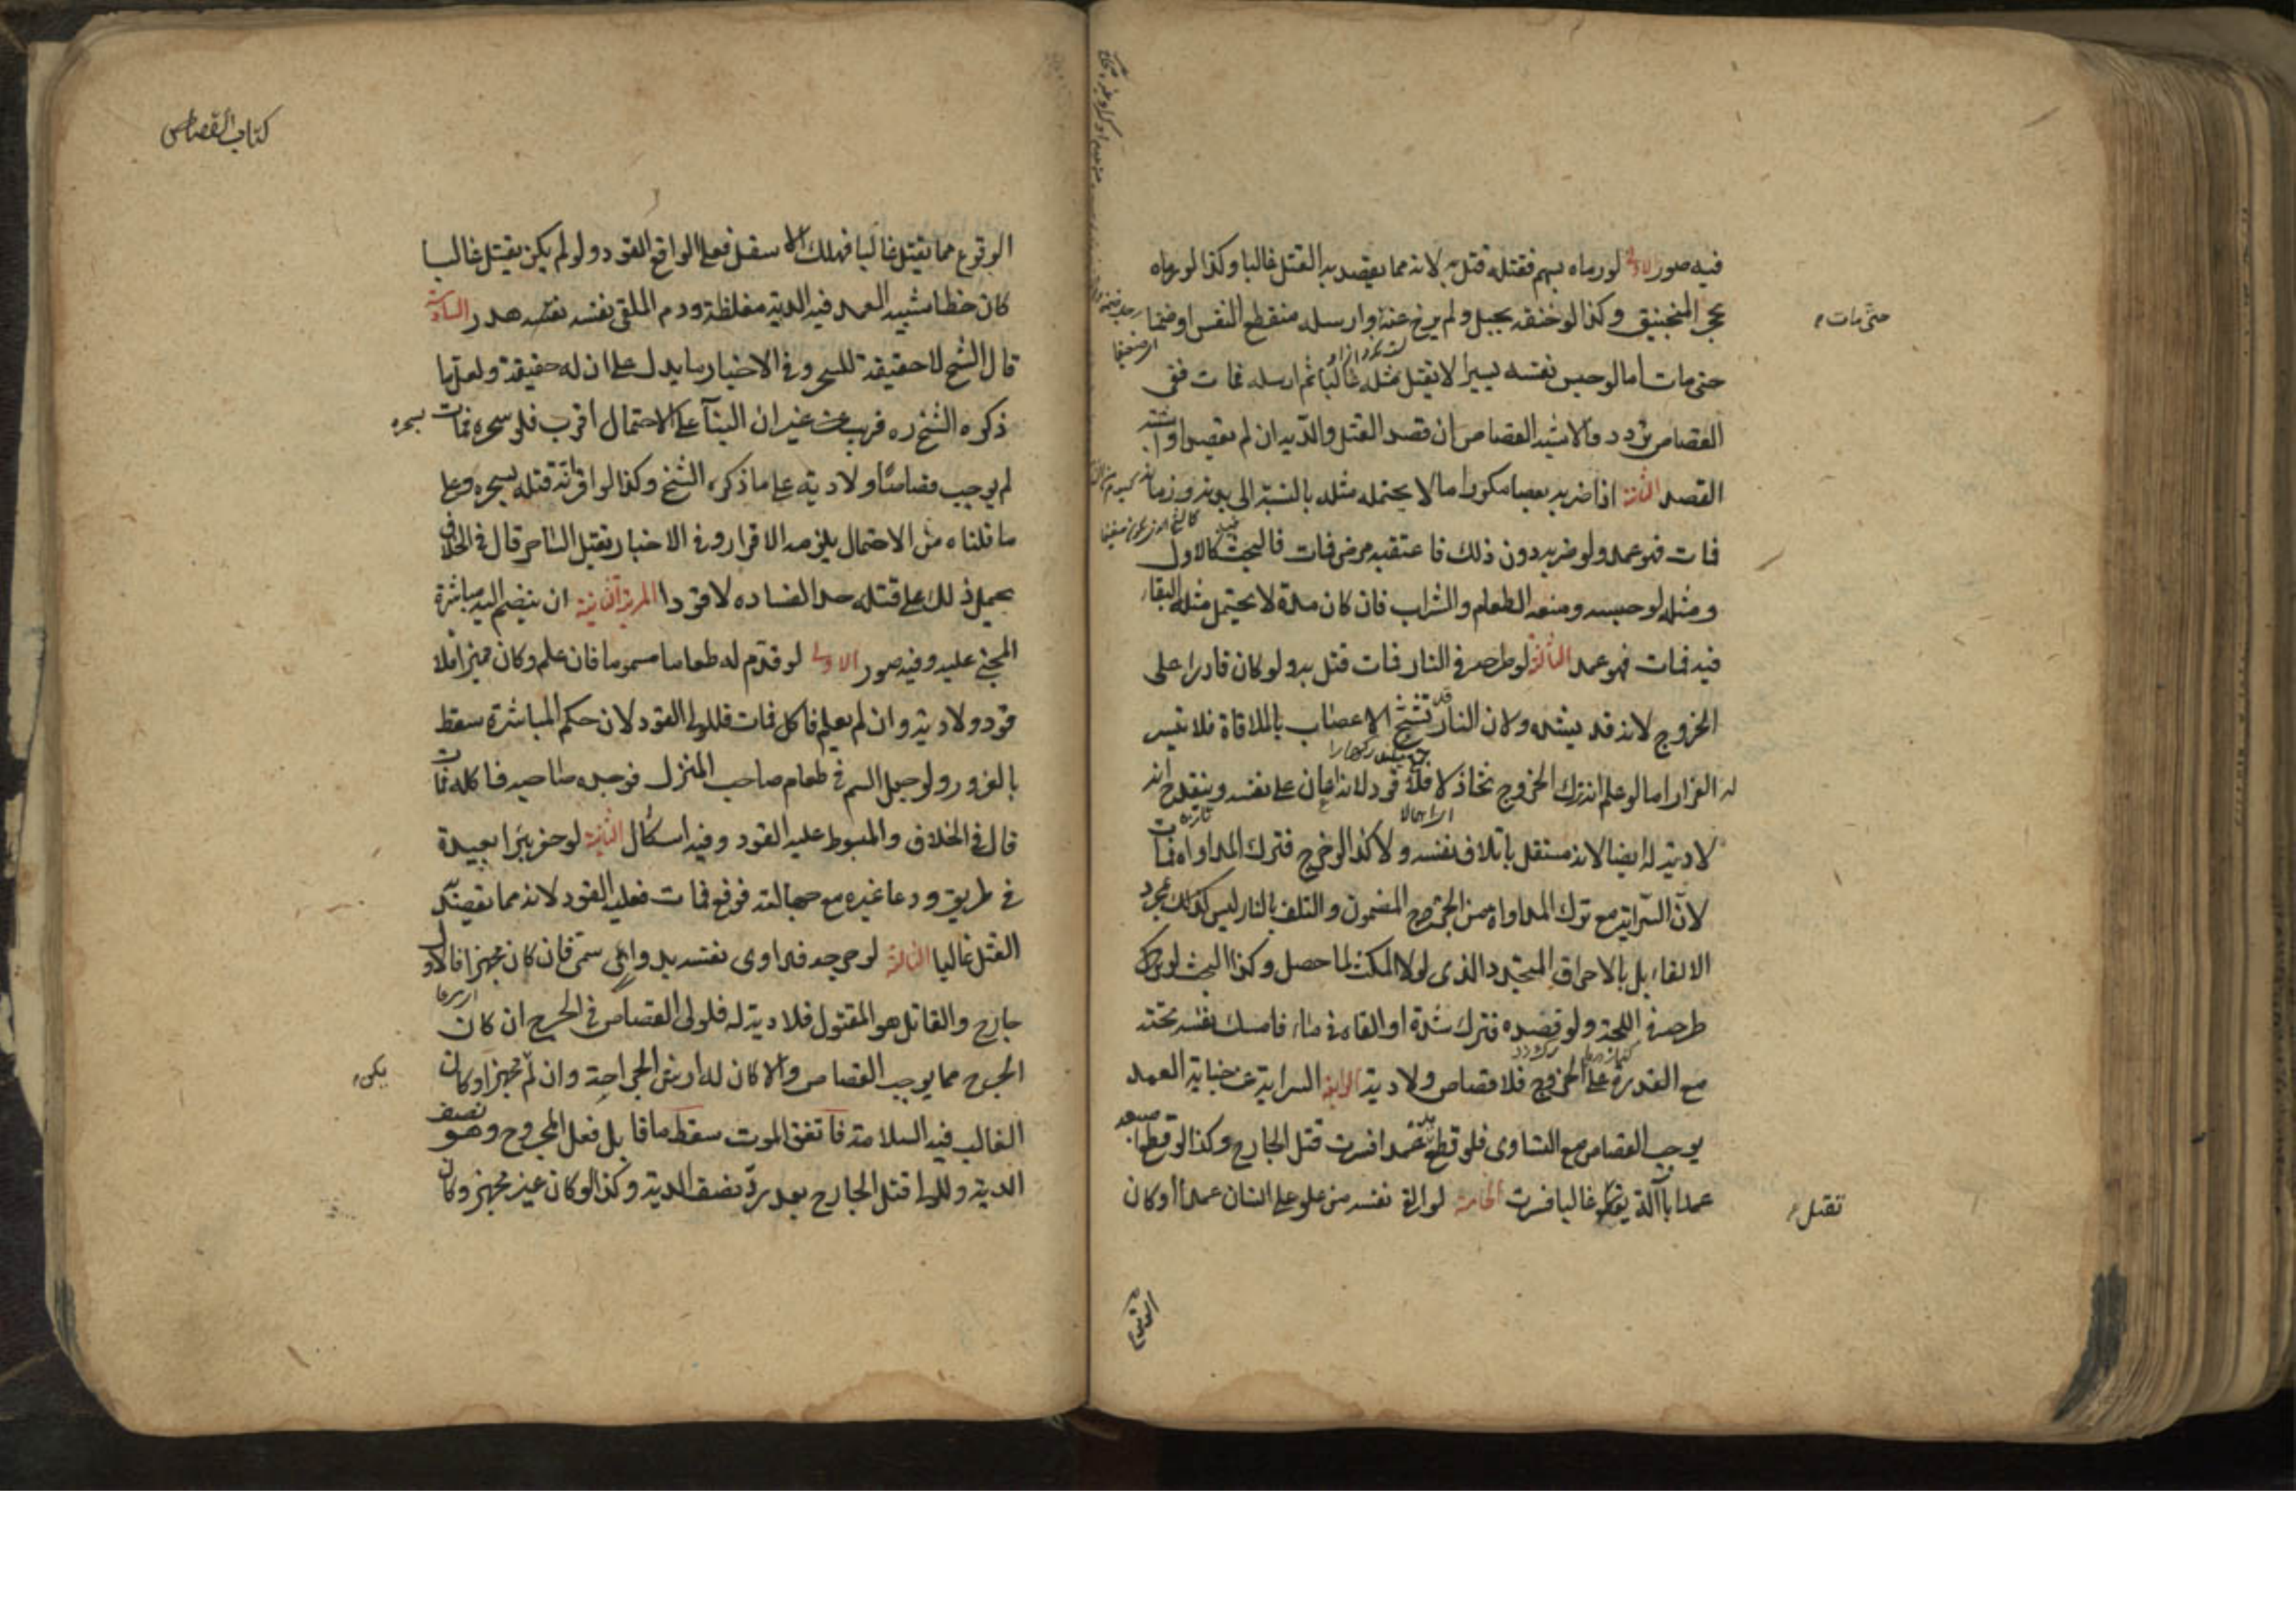 فيه صور الاولى لو رماه بسهم فقتله قتل به لانه مما يقصد به القتل غالبا وكذا لو رماه
بحجر المنجنيق وكذا لو خنقه بحبل ولم يرخ عنه او ارسله منقطع النفس او ضمنا
حتى مات اما لو حبس نفسه يسيرا لا يقتل مثله غالبا ثم ارسله فمات ففى
القصاص تردد والاشبه القصاص ان قصد القتل والدية ان لم يقصد او اشتبه
القصد الثانية اذا ضربه بعصا مكررا ما لا يحتمله مثله بالنسبة الى بدنه وزمانه
فمات فهو عمد ولو ضربه دون ذلك فاعتقبه مرض فمات فالبحث كالاول
ومثله لو حبسه ومنعه الطعام والشراب فان كان مدة لا يحتمل مثله البقاء
فيه فمات فهو عمد الثالثة لو طرحه فى النار فمات قتل به ولو كان قادرا على
الخروج لانه قد يدهش ولان النار قد تشنج الاعصاب بالملاقاة فلا تيسر
له الفرار اما لو علم انه ترك الخروج تخاذلا فلا قود لانه اعان على نفسه وينقدح انه
لا دية له ايضا لانه مستقل باتلاف نفسه ولا كذا لو خرج فترك المداواة فمات
لان السراية مع ترك المداواة من الجرح المضمون والتلف بالنار ليس كذلك بمجرد
الالقاء بل بالاحراق المتجدد الذى لولا المكث لما حصل وكذا البحث لو
طرحه فى اللجة ولو فصده فترك شده او القاه فى ماء فامسك نفسه تحته
مع القدرة على الخروج فلا قصاص ولا دية الرابعة السراية عن جناية العمد
يوجب القصاص مع التساوى فلو قطع يده عمدا فسرت قتل الجارح وكذا لو قطع اصبعه
عمدا بآلة يقطع غالبا فسرت الخامسة لو القى نفسه من علو على انسان عمدا وكان
حتى مات
تقتل
الوقوع
كتاب القصاص
الوقوع مما يقتل غالبا فهلك الاسفل فعلى الواقع القود ولو لم يكن يقتل غالبا
كان خطا شبيه العمد فيه الدية مغلظة ودم الملقى نفسه هدر السادسة
قال الشيخ لا حقيقة للسحر وفى الاخبار ما يدل على ان له حقيقة ولعل ما
ذكره الشيخ ره قريب غير ان البنآء على الاحتمال اقرب فلو سحره فمات بسحره
لم يوجب قصاصا ولا دية على ما ذكره الشيخ وكذا لو اقر انه قتله بسحره وعلى
ما قلناه من الاحتمال يلزمه الاقرار وفى الاخبار يقتل الساحر قال فى الخلاف
يحمل ذلك على قتله حد الفساده لا قودا المرتبة الثانية ان ينضم اليه مباشرة
المجنى عليه وفيه صور الاولى لو قدم له طعاما مسموما فان علم وكان مميزا فلا
قود ولا دية وان لم يعلم فاكل فمات فللولى القود لان حكم المباشرة سقط
بالغرور ولو جعل السم فى طعام صاحب المنزل فوجده صاحبه فاكله فمات
قال فى الخلاف والمبسوط عليه القود وفيه اشكال الثانية لو حفر بئرا بعيدة
فى طريق ودعا غيره مع جهالته فوقع فمات فعليه القود لانه مما يقصد به
القتل غالبا الثالثة لو جرحه فداوى نفسه بدواء سمى فان كان مجهزا فالاول
جارح والقاتل هو المقتول فلا دية له فلولى القصاص فى الجرح ان كان
الجرح مما يوجب القصاص والا كان له ارش الجراحة وان لم مجهزا وكان
الغالب فيه السلامة فاتفق الموت سقط ما قابل فعل المجروح وهو نصف
الدية وللولى قتل الجارح بعد رد نصف الدية وكذا لو كان غير مجهز وكان
يكن